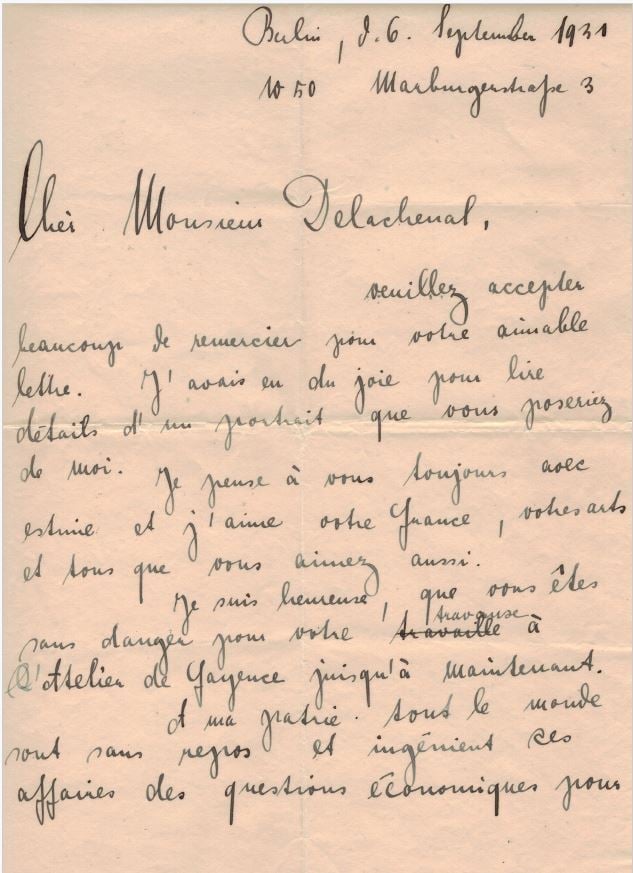 Berlin, d. 6. September 1931
W 50 Marburgerstraße 3
Cher Monsieur Delachenal,
veuillez accepter
beaucoup de remercier pour votre aimable
lettre. J'avais eu du joie pour lire
détails d'un portrait que vous poseriez
de moi. Je pense à vous toujours avec
estime et j'aime votre France, votres arts
et tous que vous aimez aussi.
Je suis heureuse, que vous êtes
sans danger pour votre travaille à
l'Atelier de Fayence jusqu'à maintenant.
A ma patrie tout le monde
sont sans repos et ingénient ses
affaires des questions économiques pour